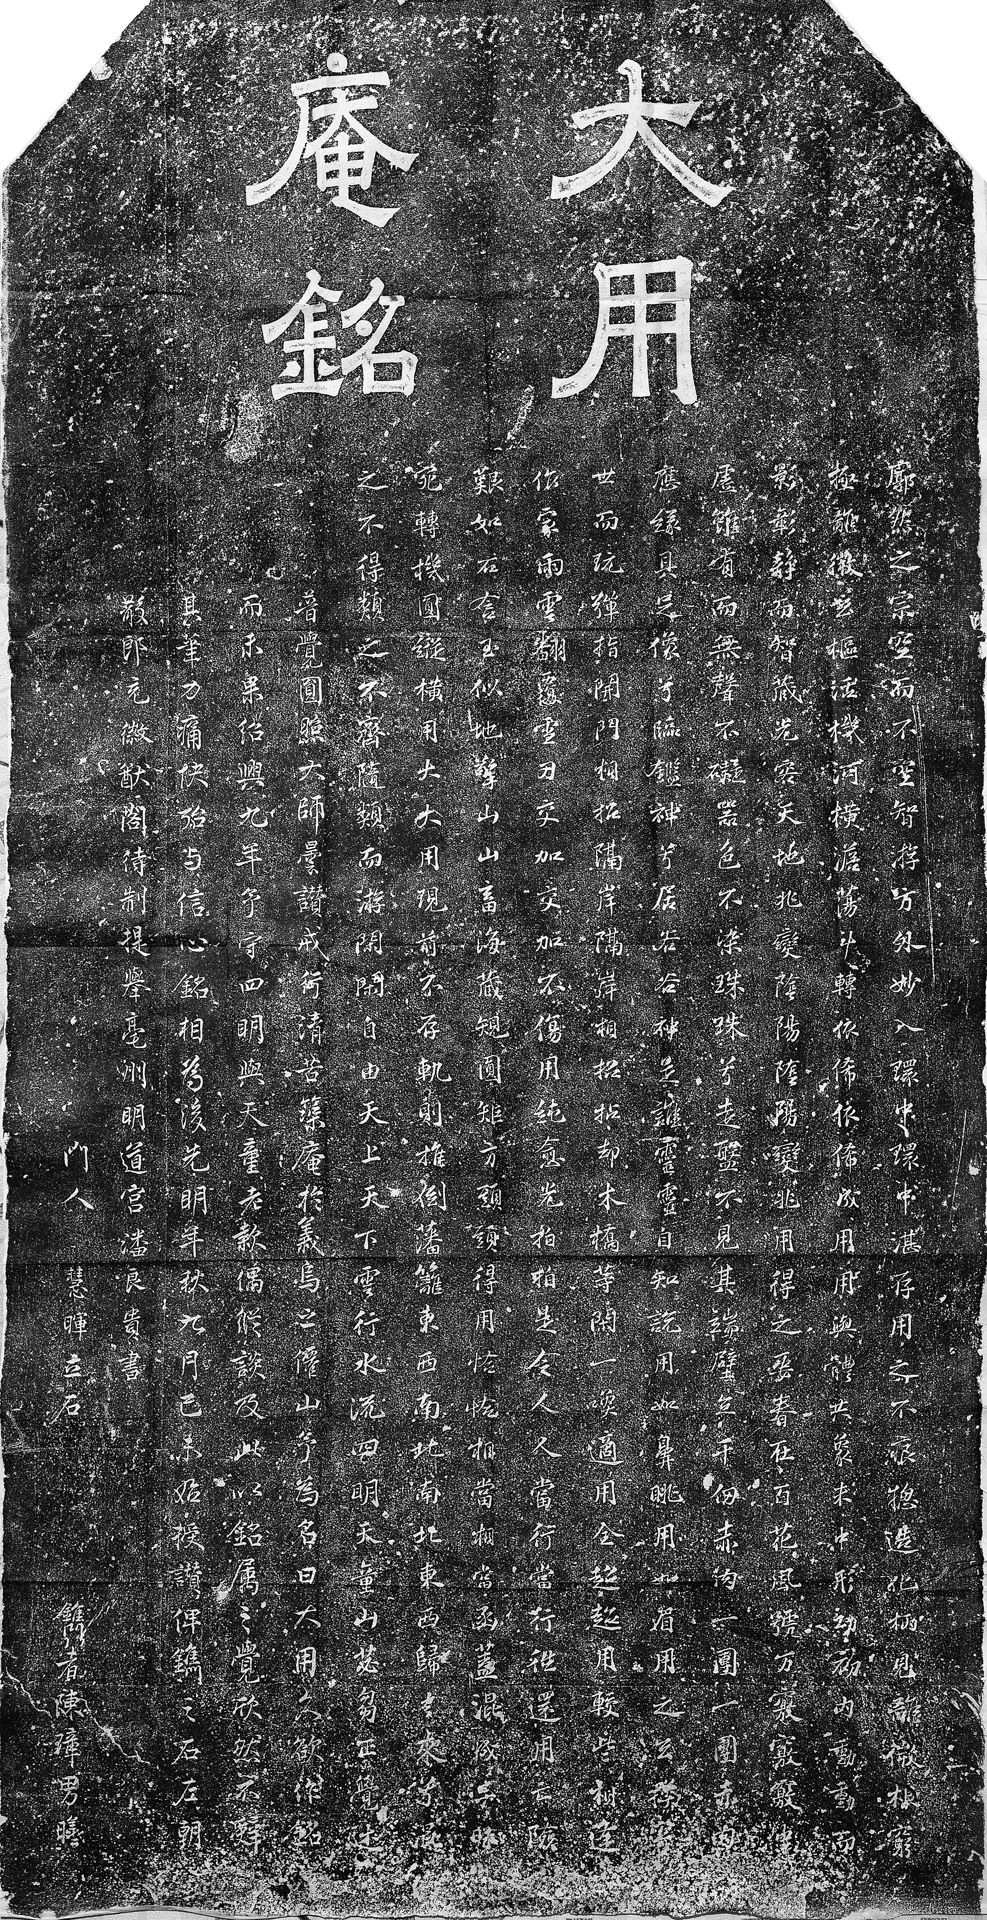 大用
庵銘
廓然之宗空而不空智游方外妙入環中環中湛存用之不痕摠造化柄見離微根窮
極離微玄樞活機河横澹蕩斗轉依俙依俙成用用與體共象未中形動初内動動而
影彰静而智藏光容天地兆變陰陽陰陽變兆用得之要春在百花風號万竅竅竅
虚雖有而無聲不礙器色不染珠珠兮走盤不見其端壁立千仞赤肉一團一團赤肉
應緣具足像兮臨鑑神兮居谷谷神是誰靈靈自知説用如鼻眺用如眉用之
世而玩彈指開門相招隔岸隔岸相招拈却木橋等閑一喚適用全超超用較些相逢
作家雨雲翻覆雪刃交加交加不傷用純愈光拍拍是令人人當行當行徃還用亡險
艱如石含玉似地擎山山畜海藏規圓矩方頭頭得用恰恰相當相當函蓋混成
宛轉機圓縱横用大大用現前不存軌則推倒藩籬東西南北南北東西歸去來兮
之不得類之不齊隨類而游閑閑自由天上天下雲行水流四明天童山苾芻正覺述
普覺圓照大師曇讚戒行清苦築庵於義烏之僊山予爲名曰大用久欲作銘
而未果紹興九年予守四明與天童老款偶縱談及此以銘属之覺欣然不辭
其筆力痛快殆与信心銘相爲後先明年秋九月己未始授讚俾鐫之石左朝
散郎充徽猷閣待制提舉亳州明道宫潘良貴書
門人 慧暉立石 鐫者陳璋男曦